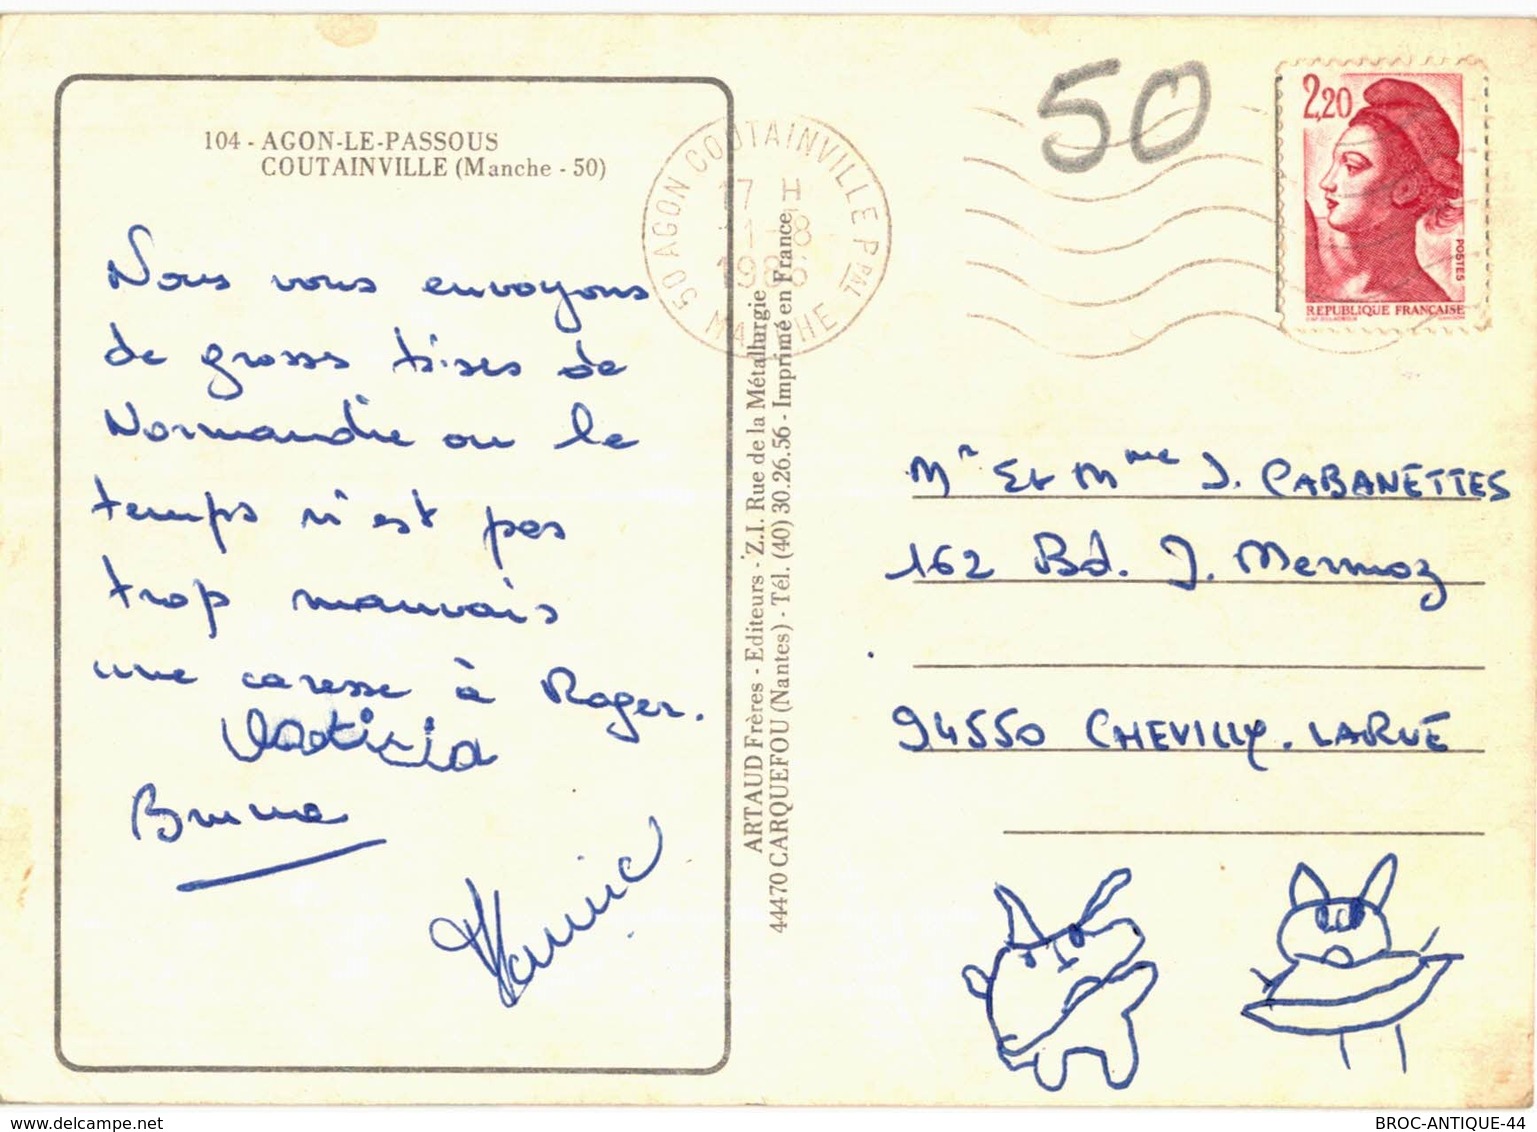 104 - AGON-LE-PASSOUS
COUTAINVILLE (Manche - 50)
Nous vous envoyons
de grosses bises de
Normandie ou le
temps n'est pas
trop mauvais
une caresse à Roger.
Laeticia
Brune
50 AGON COUTAINVILLE PPAL
17 H
1-8
1986
MANCHE
ARTAUD Frères - Editeurs - Z.I. Rue de la Métallurgie
44470 CARQUEFOU (Nantes) - Tél. (40) 30.26.56 - Imprimé en France
50
2,20
POSTES
REPUBLIQUE FRANÇAISE
Mr Et Mme J. CABANETTES
162 Bd. J. Mermoz
94550 CHEVILLY. LARUE
delcampe.net
BROC-ANTIQUE-44